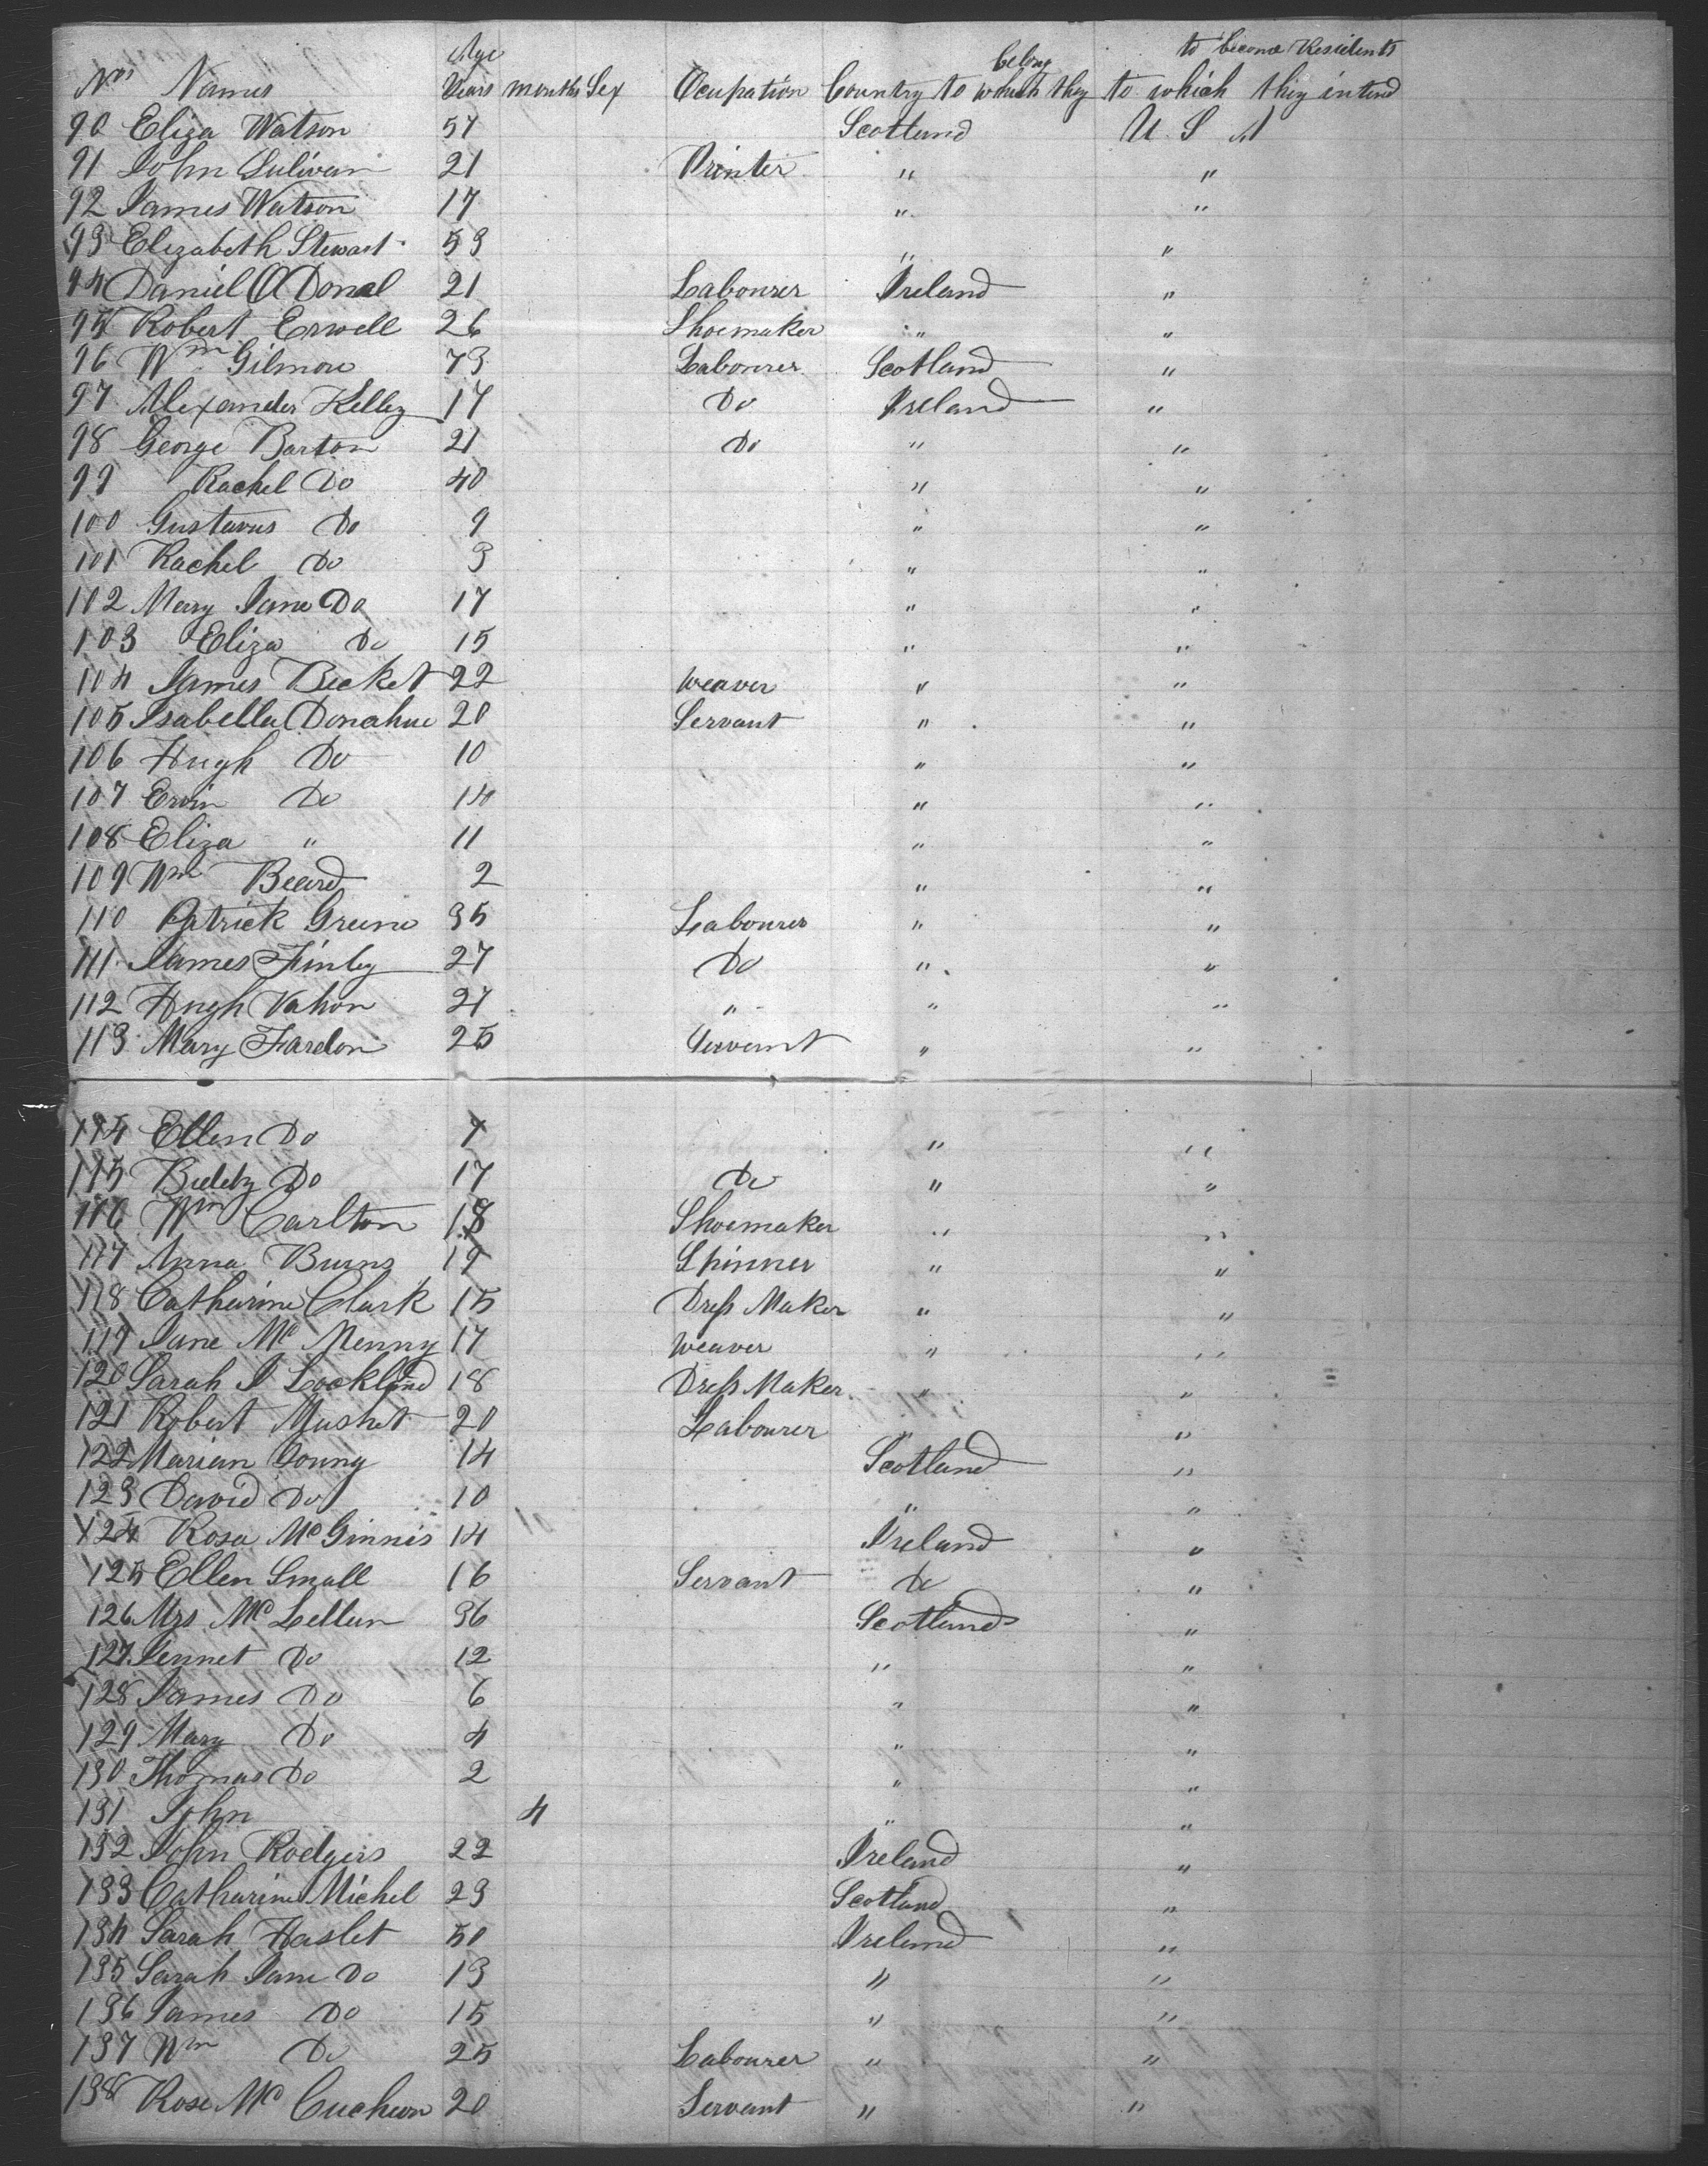 Age belong to become Residents
Nos Names Years months Sex Ocupation Country to which they to which they intend
90 Eliza Watson 57 Scotland U S A
91 John Sulivan 21 Printer " "
92 James Watson 17 " "
93 Elizabeth Stewart 53 " "
94 Daniel O Donal 21 Labourer Ireland "
95 Robert Erwell 26 Shoemaker " "
96 Wm Gilmore 73 Labourer Scotland "
97 Alexander Kelley 17 Do Ireland "
98 George Barton 21 Do " "
99 Rachel Do 40 " "
100 Gustavus Do 9 " "
101 Rachel Do 3 " "
102 Mary Jane Do 17 " "
103 Eliza Do 15 " "
104 James Becket 22 weaver " "
105 Isabella Donahue 20 Servant " "
106 Hugh Do 10 " "
107 Ervin Do 14 " "
108 Eliza " 11 " "
109 Wm Beard 2 " "
110 Patrick Greene 35 Labourer " "
111 James Finley 27 Do " "
112 Hugh Vahon 27 " " "
113 Mary Farelon 25 Servant " "
114 Ellen Do 7 " "
115 Do 17 Do " "
116 Wm Carlton 18 Shoemaker " "
117 Anna Burns 19 Spinner " "
118 Catharine Clark 15 Dress Maker " "
119 Jane Mc Menny 17 weaver " "
120 Sarah J Lockland 18 Dress Maker " "
121 Robert Mushet 20 Labourer " "
122 Marian Young 14 Scotland "
123 David Do 10 " "
124 Rosa McGinnis 14 Ireland "
125 Ellen Small 16 Servant Do "
126 Mrs McLellan 36 Scotland "
127 Jennet Do 12 " "
128 James Do 6 " "
129 Mary Do 4 " "
130 Thomas Do 2 " "
131 John 4 " "
132 John Rodgers 22 Ireland "
133 Catharine Michel 23 Scotland "
134 Sarah Haslet 50 Ireland "
135 Sarah Jane Do 13 " "
136 James Do 15 " "
137 Wm Do 25 Labourer " "
138 Rose Mc Cucheon 20 Servant " "